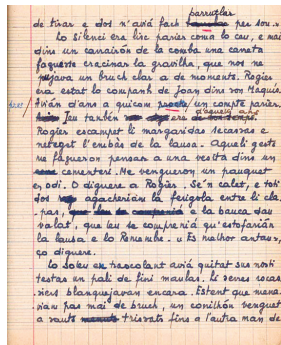 parruflar
de tirar e dos n'aviá fach per sou.
Lo silenci era lire parier coma lo ceu, e mai
dins un carrairòn de la comba una caneta
faguesse cracinar la gravilha, que nos ne
un bruch clar a de moments. Rogier
era estat lo companh de Joan dins lo Maquis.
Avián d'ans a quicòm pròche un compte parier.
d'aquels ans
Ieu tanben ère
Rogier escampet li margaridas secassas e
neteget l'embàs de la lausa. Aqueli gests
me fagueron pensar a una vesita dins un
cementeri. Me venguèron un pauquet
en òdi. O diguère a Rogier. Se'n calet, e toti
dos agacherian la ferigola entre li cla-
pas, e la bauca dau
valat, que ieu se compreniá qu'estofarián
la lausa e lo Renembre. « Es melhor antau »,
ço diguere.
Lo Soleu en trescolant aviá quitat sus nosti
testas un pali de fini maulas. Li seres rocas-
siers blanquejavan encara. Estent que mena-
viam pas mai de bruch, un conilhòn venguet
a vauts trissats fins a l'autra man de